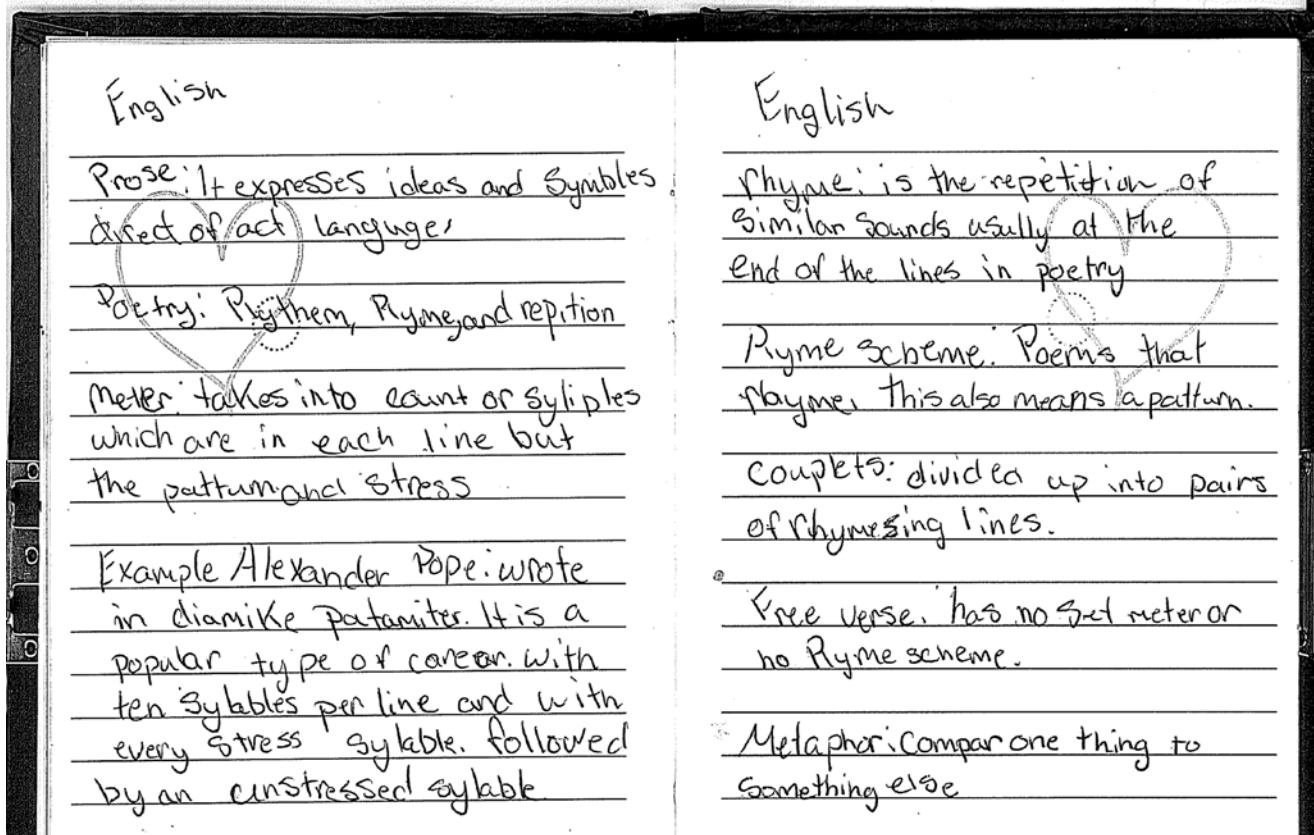 English
Prose: It expresses ideas and Symbles
direct of act languge,
Poetry: Rythem, Ryme, and repition
Meter: takes into count or syliples
which are in each line but
the patturn and stress
Example Alexander Pope: wrote
in diamike patamiter. It is a
popular type of carear. with
ten sylables per line and with
every stress sylable. followed
by an unstressed sylable
English
rhyme: is the repetition of
similar sounds usully at the
end of the lines in poetry
Ryme scheme. Poems that
rhyme, this also means a patturn.
Couplets: divided up into pairs
of rhymesing lines.
Free verse. has no set meter or
no Ryme scheme.
Metaphor: Compar one thing to
something else